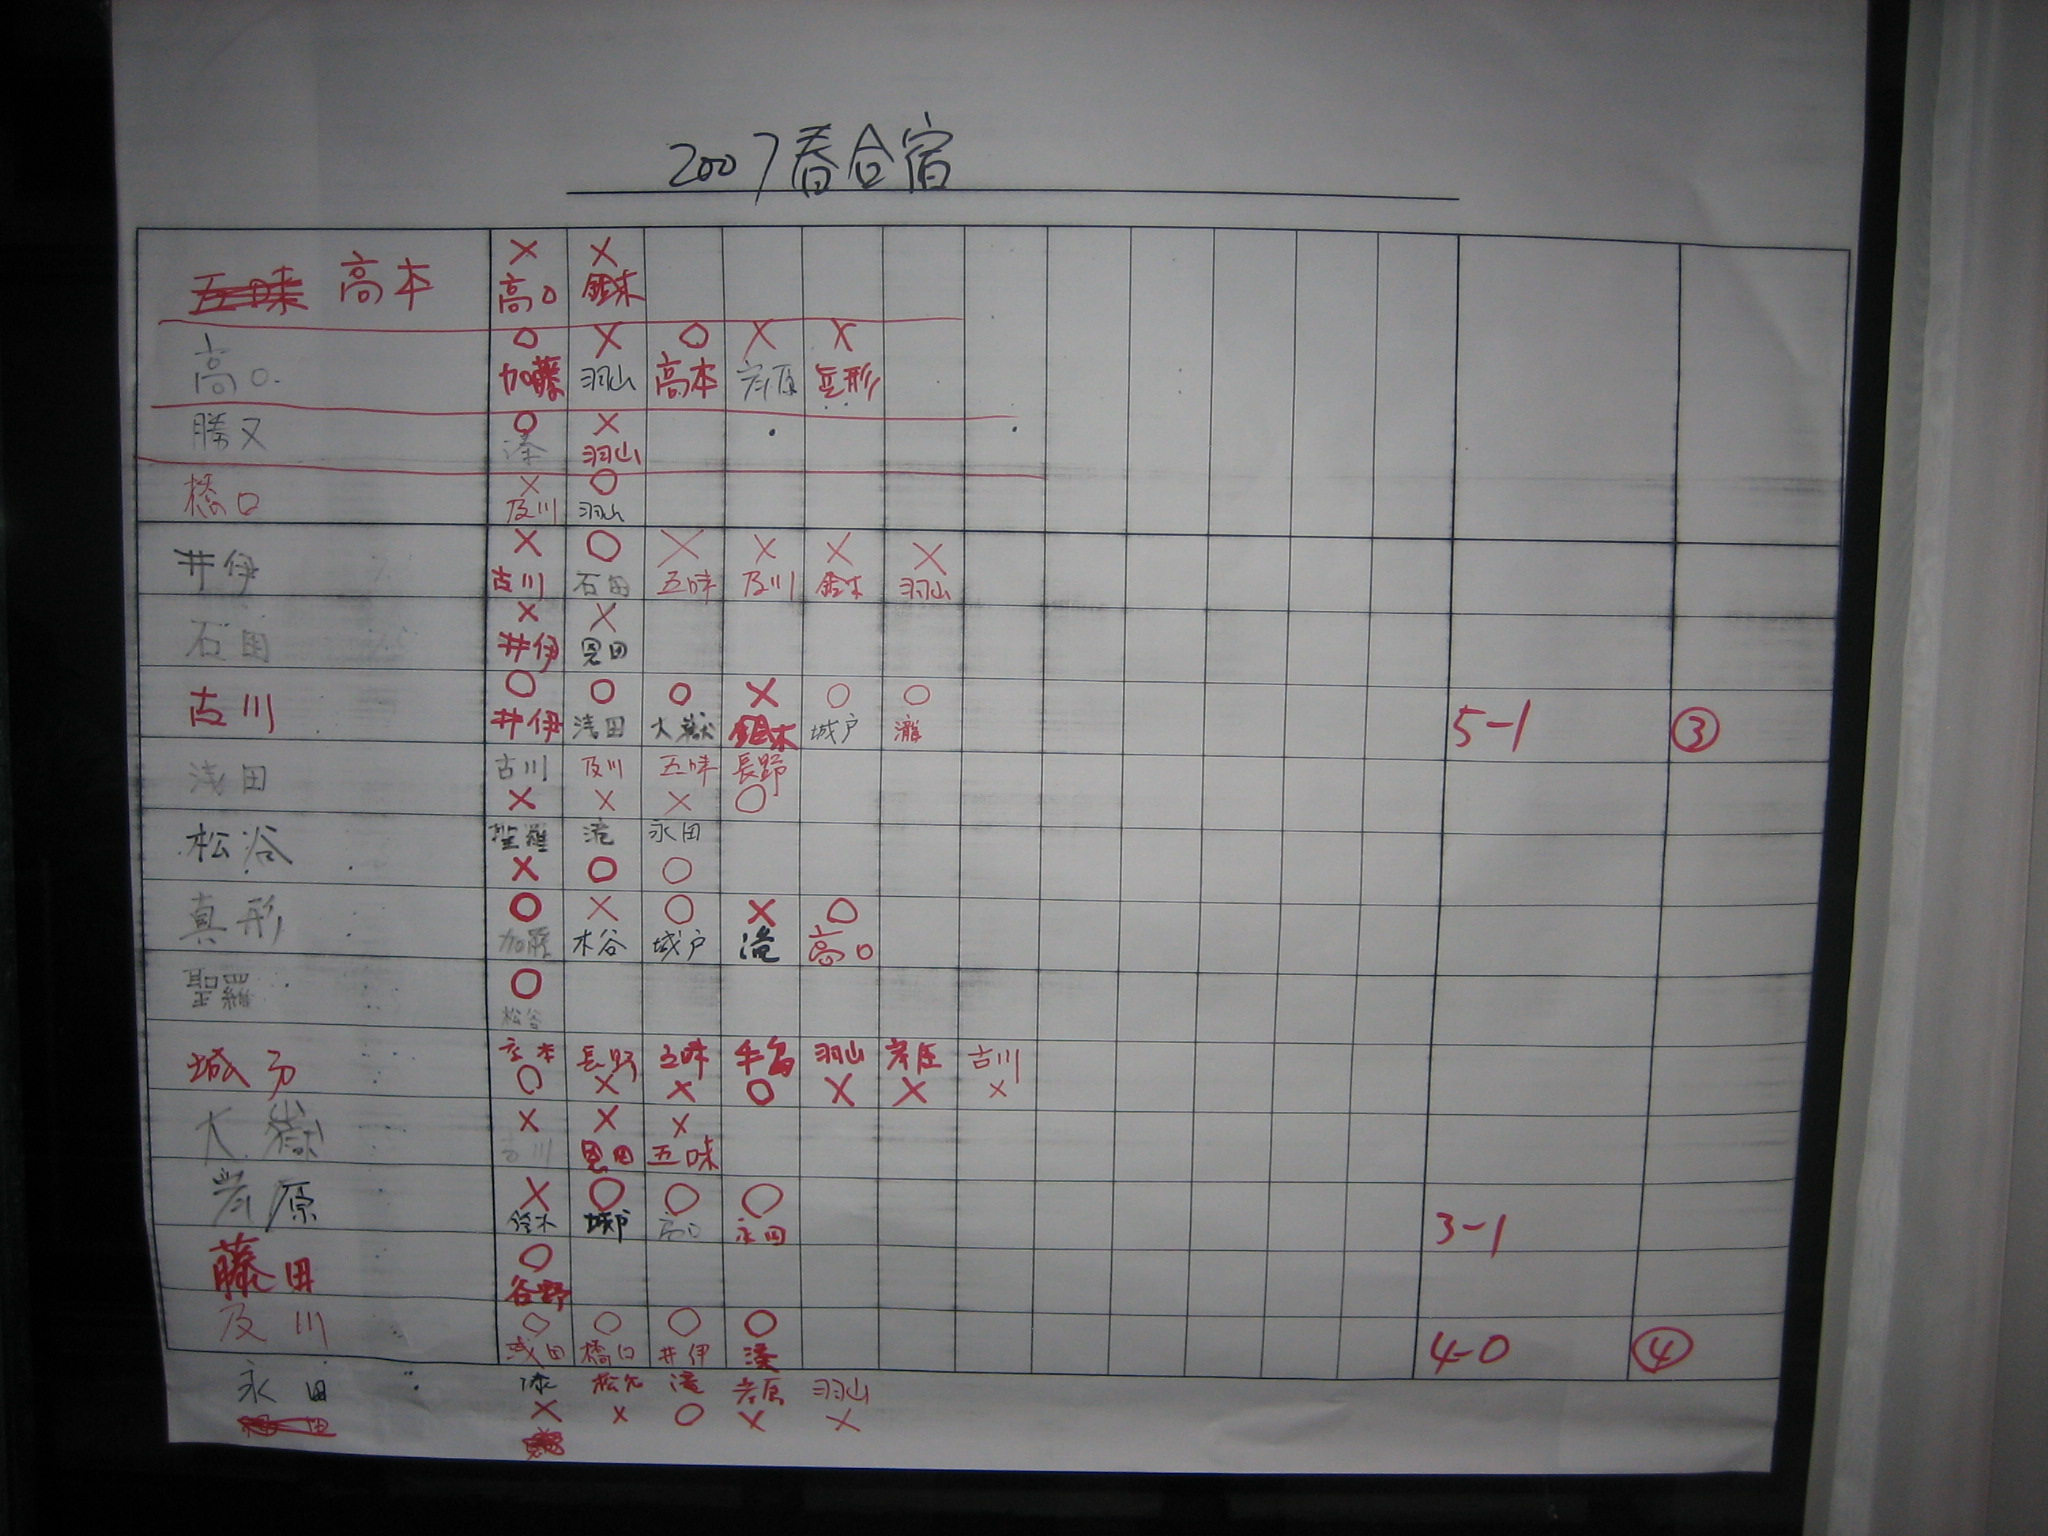 2007春合宿
高本 × ×
高口 鈴木
○ × ○ × ×
高口 加藤 羽山 高本 岸原 真形
勝又 ○ ×
湊 羽山
橋口 × ○
及川 羽山
井伊 × ○ × × × ×
古川 石田 五味 及川 鈴木 羽山
石田 × ×
井伊 恩田
古川 ○ ○ ○ × ○ ○
井伊 浅田 大嶽 鈴木 城戸 瀧 5-1 ③
浅田 古川 及川 五味 長野
× × × ○
松谷 聖羅 滝 永田
× ○ ○
真形 ○ × ○ × ○
加藤 木谷 城戸 滝 高口
聖羅 ○
松谷
城戸 高本 長野 五味 羽山 岸原 古川
○ × × ○ × × ×
大嶽 × × ×
古川 恩田 五味
岸原 × ○ ○ ○
鈴木 城戸 高口 永田 3-1
藤田 ○
谷野
及川 ○ ○ ○ ○
浅田 橋口 井伊 湊 4-0 ④
永田 湊 松谷 滝 岸原 羽山
× × ○ × ×